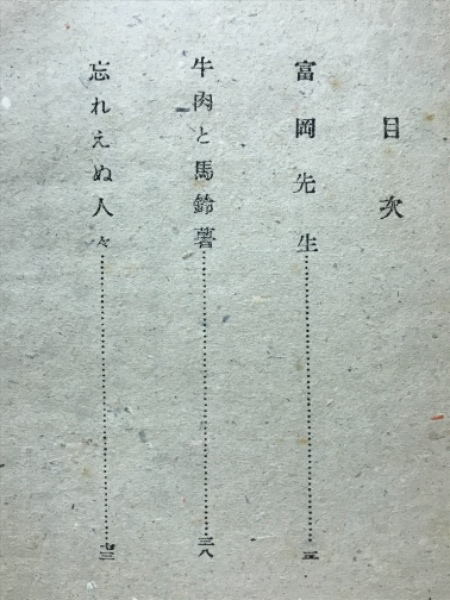 目次
富岡先生……三
牛肉と馬鈴薯……三八
忘れえぬ人々……七三